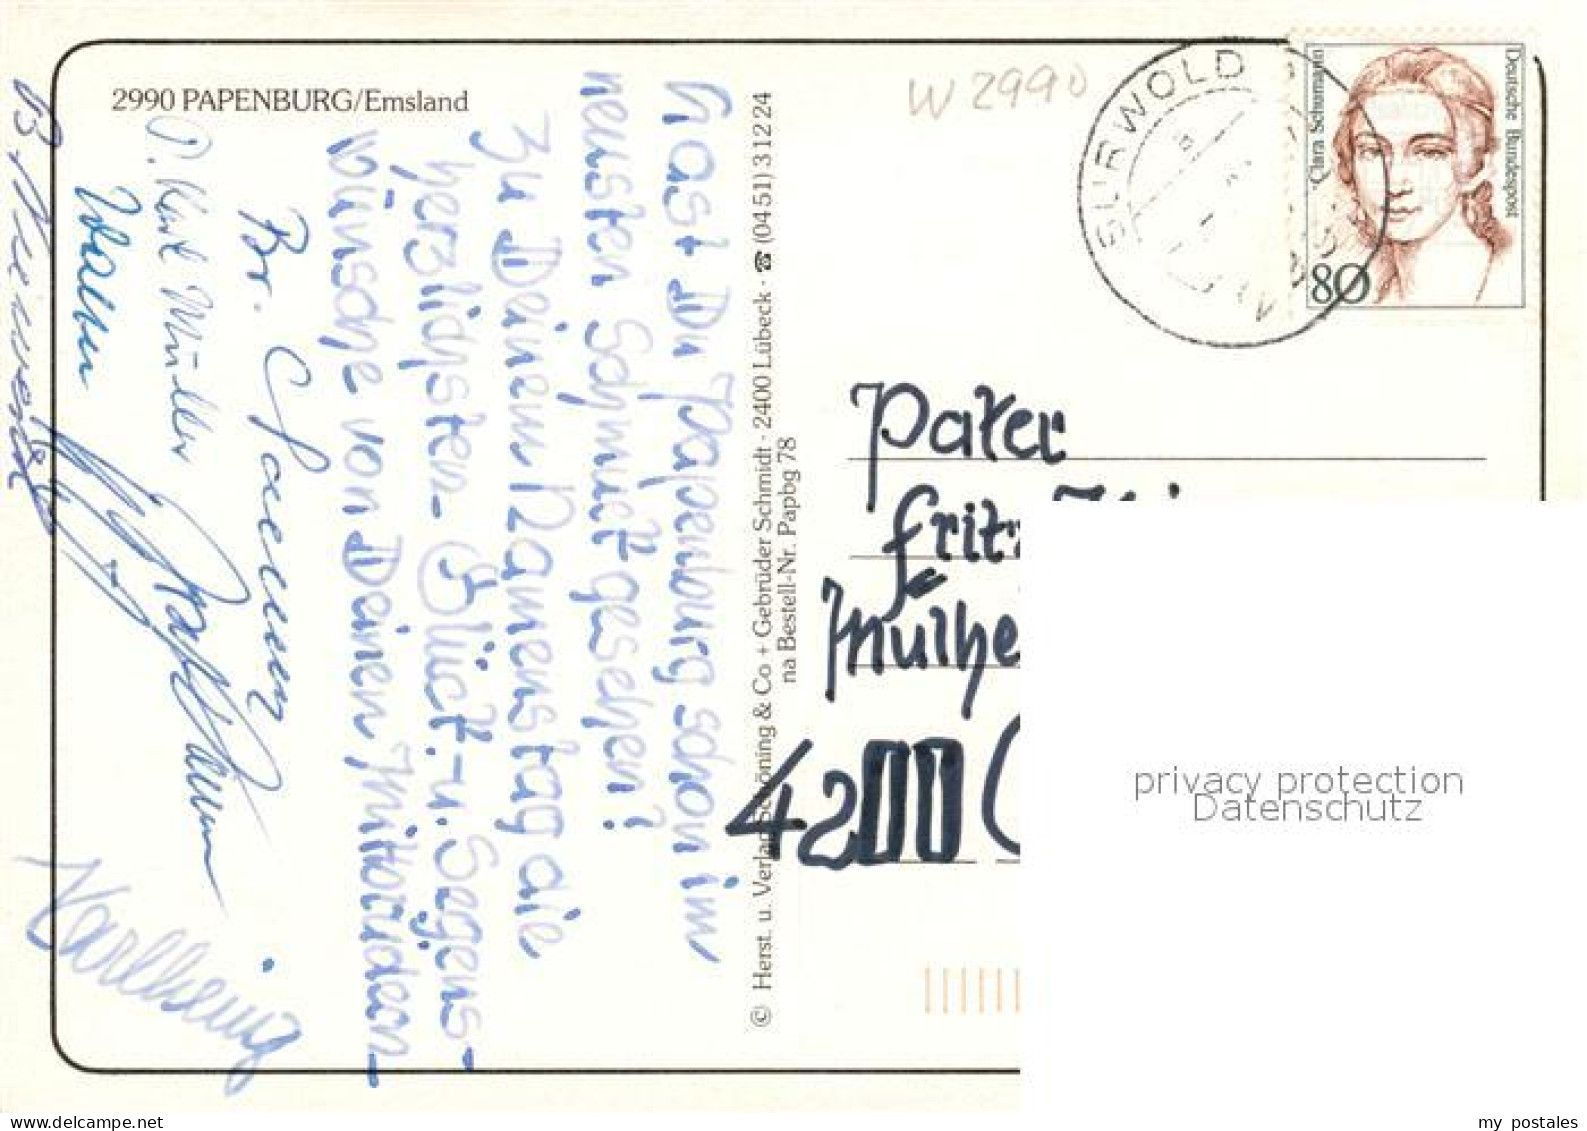 2990 PAPENBURG/Emsland
Hast Du Papenburg schon im
neusten Schmuck gesehen?
Zu Deinem Namenstag die
herzlichsten Glück- u. Segens-
wünsche von Deinen Mitbrüdern
Br.
P. Karl Müller
Karlheinz
© Herst. u. Verlag Schöning & Co + Gebrüder Schmidt · 2400 Lübeck · ☎ (0451) 31224
na Bestell-Nr. Papbg 78
W 2990
SURWOLD
Clara Schumann
Deutsche Bundespost
80
Pater
Fritz
Mülhe
4200
privacy protection
Datenschutz
my postales